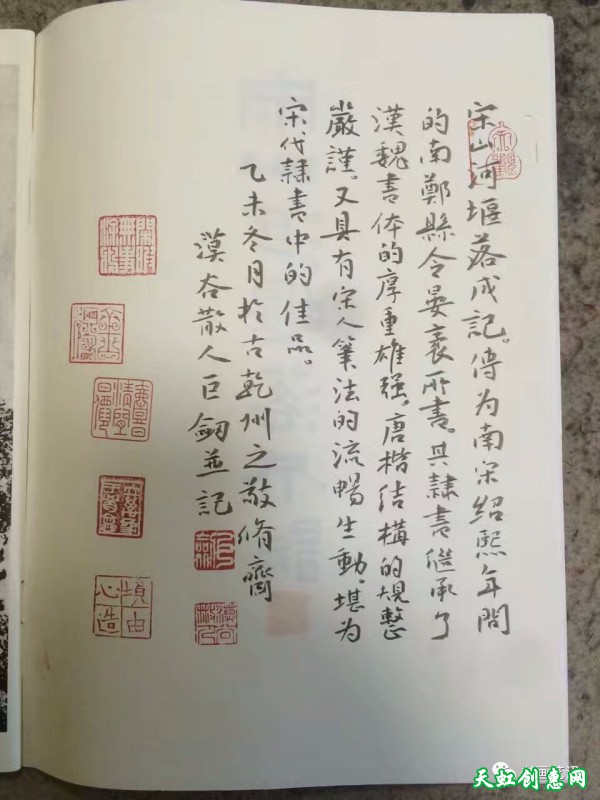 宋山河堰落成記。傳为南宋紹熙年間
的南鄭縣令晏袤所書。其隸書继承了
漢魏書体的厚重雄强。唐楷结構的規整
嚴謹。又具有宋人筆法的流暢生動。堪为
宋代隸書中的佳品。
乙未冬月於古乾州之敬脩齋
漠谷散人巨釰並記
境由心造
天虹创意网